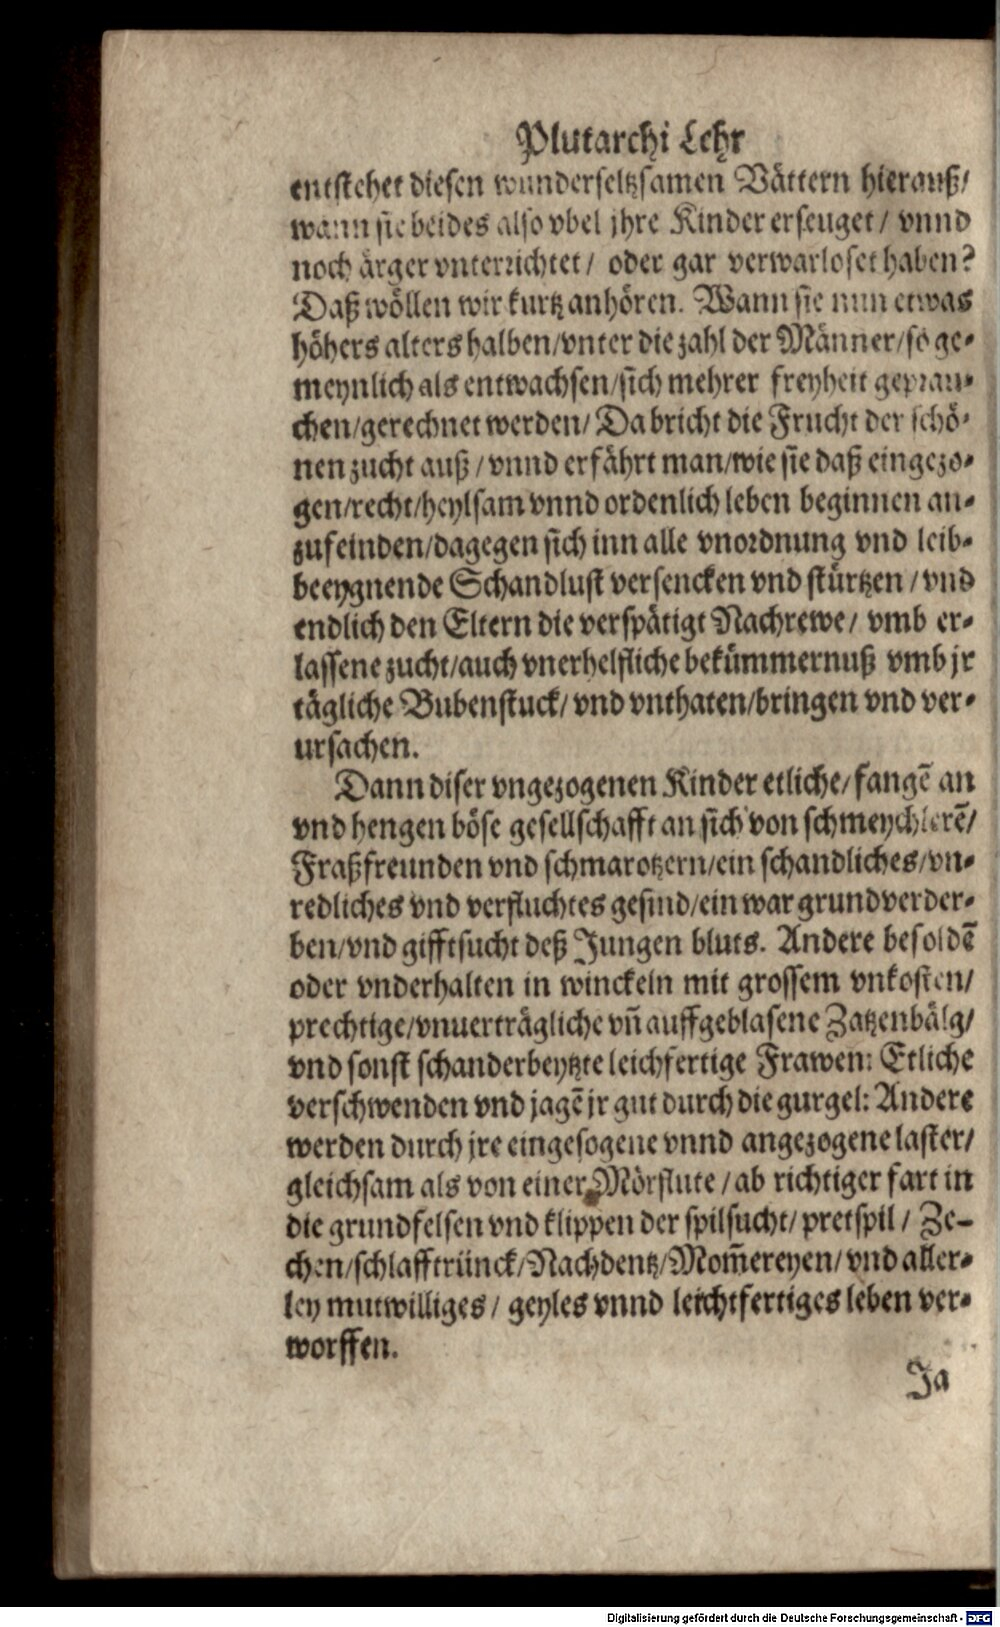 Plutarchi Lehr
entstehet diesen wunderseltzsamen Vättern hierauß/
wann sie beides also vbel jhre Kinder erseuget / vnnd
noch ärger vnterrichtet / oder gar verwarloset haben?
Daß wöllen wir kurtz anhören. Wann sie nun etwas
höhers alters halben/vnter die zahl der Männer/so ge-
meynlich als entwachsen/sich mehrer freyheit geprau-
chen/gerechnet werden/ Da bricht die Frucht der schö-
nen zucht auß / vnnd erfährt man/wie sie daß eingezo-
gen/recht/heylsam vnnd ordenlich leben beginnen an-
zufeinden/dagegen sich inn alle vnordnung vnd leib-
beeygnende Schandlust versencken vnd stürtzen / vnd
endlich den Eltern die verspätigt Nachrewe/ vmb er-
lassene zucht/auch vnerhelfliche bekümmernuß vmb jr
tägliche Bubenstuck/ vnd vnthaten/bringen vnd ver-
ursachen.
Dann diser vngezogenen Kinder etliche/ fangē an
vnd hengen böse gesellschafft an sich von schmeychlerē/
Fraßfreunden vnd schmarotzern/ein schandliches/vn-
redliches vnd verfluchtes gesind/ein war grundverder-
ben/vnd gifftsucht deß Jungen bluts. Andere besoldē
oder vnderhalten in winckeln mit grossem vnkosten/
prechtige/vnuerträgliche vñ auffgeblasene Zatzenbälg/
vnd sonst schanderbeytzte leichfertige Frawen: Etliche
verschwenden vnd jagē jr gut durch die gurgel: Andere
werden durch jre eingesogene vnnd angezogene laster/
gleichsam als von einer Mörflute / ab richtiger fart in
die grundfelsen vnd klippen der spilsucht/ pretspil / Ze-
chen/schlafftrünck/Nachdentz/Mom̃ereyen/ vnd aller-
ley mutwilliges / geyles vnnd leichtfertiges leben ver-
worffen.
Ja
Digitalisierung gefördert durch die Deutsche Forschungsgemeinschaft - DFG